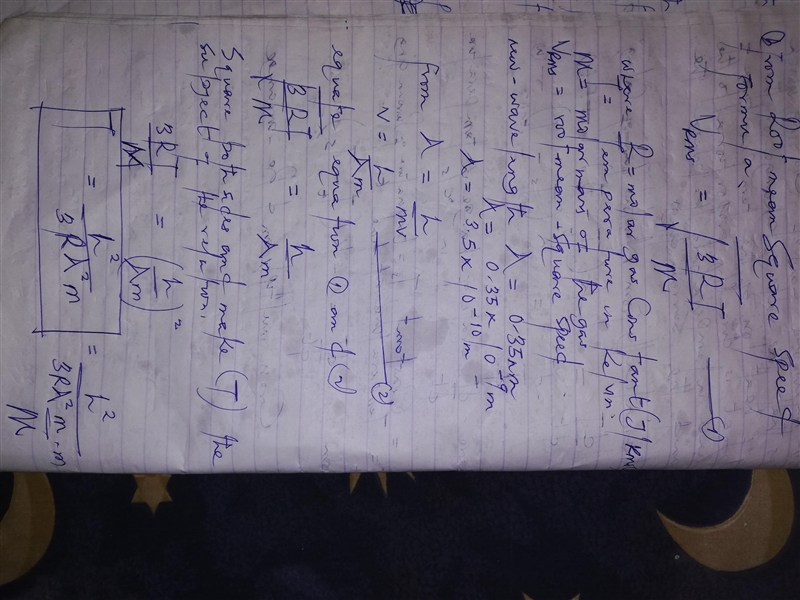 from Root mean Square Speed
formula,
V_rms = √(3RT/M) ——— (1)
where R = molar gas Constant (J/Kmol
T = temperature in Kelvin
M = molar mass of the gas
V_rms = root mean-square speed
now-wavelength λ = 0.35nm
λ = 0.35 x 10^-9 m
λ = 3.5 x 10^-10 m
from λ = h/mv
v = h/λm ——— (2)
equate equation (1) and (2)
√(3RT/M) = h/λm
Square both sides and make (T) the
subject of the
3RT/M = (h/λm)²
T = h²/3Rλ²m = h²/3Rλ²m·m
M